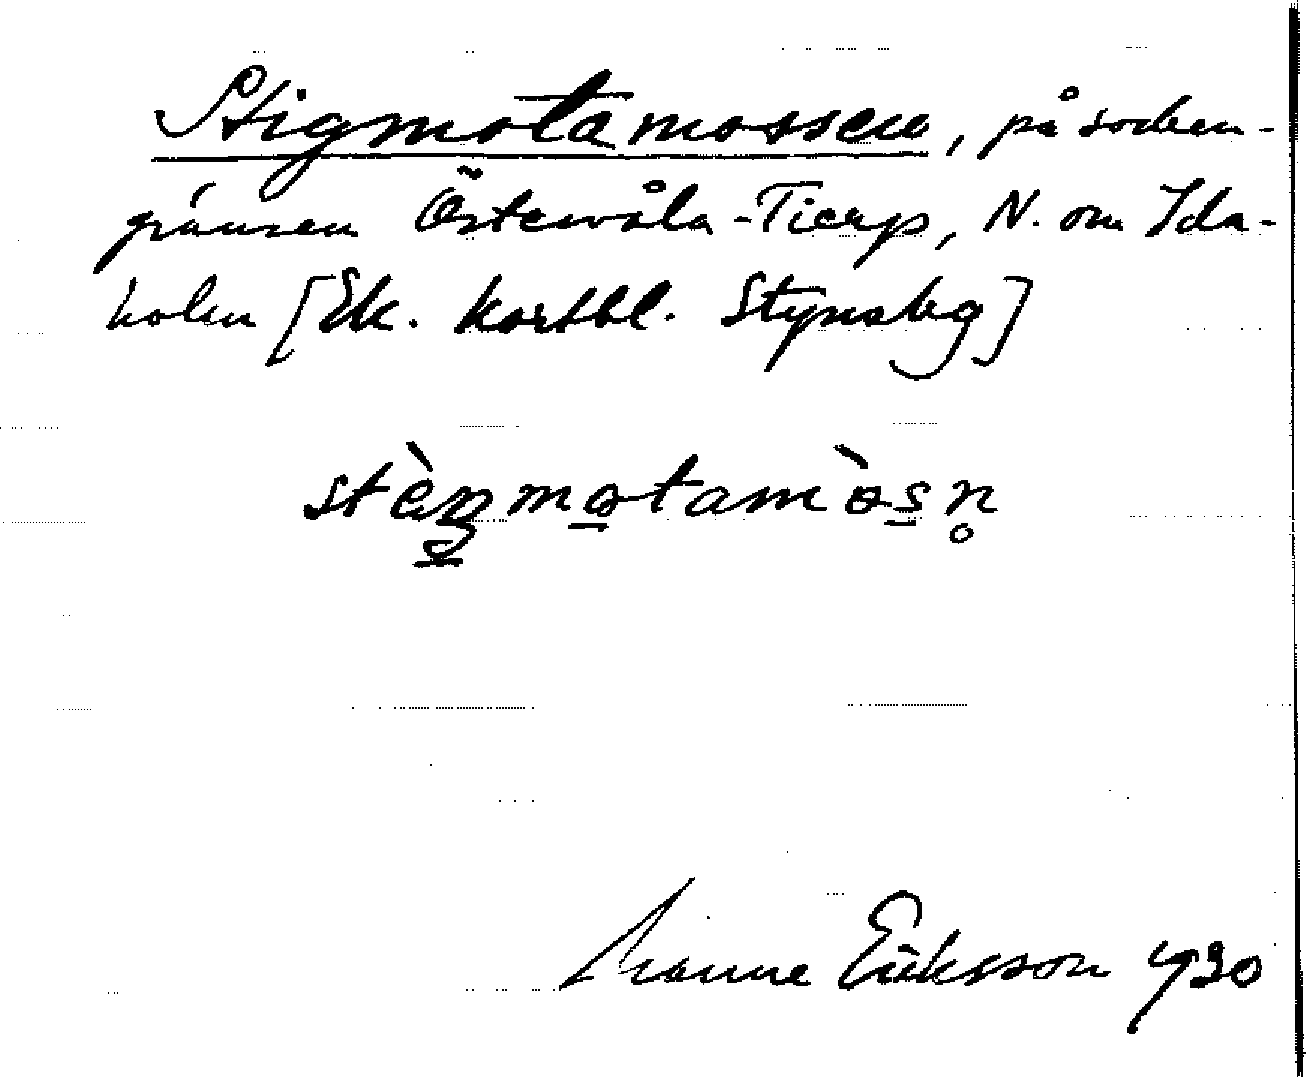 Stigmotamossen, på socken-
gränsen Östervåla-Tierp, N. om Ida-
holm [Ek. kartbl.
stèŋmotamòsn̥
Manne Eriksson 1930